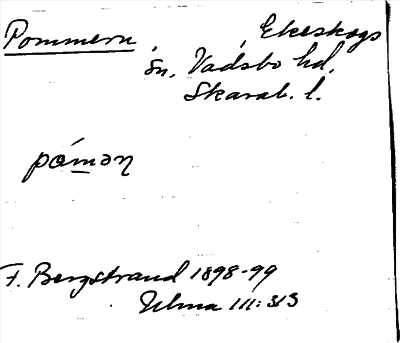 Pommern Ekeskogs
sn, Vadsbo hd,
Skarab. l.
pómən
F. Bergstrand 1898-99
Ulma 111:313